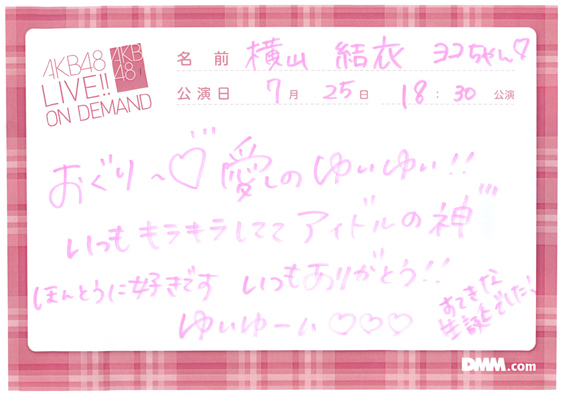 AKB48
LIVE!!
ON DEMAND
AKB
48
名 前 横山 結衣 ヨコちゃん♡
公演日 7月 25日 18:30 公演
おぐり〜♡ 愛しの ゆいゆい!!
いつも キラキラしてて アイドルの神
ほんとうに好きです いつもありがとう!!
すてきな
生誕祭でした!
ゆいゆーい ♡♡♡
DMM.com